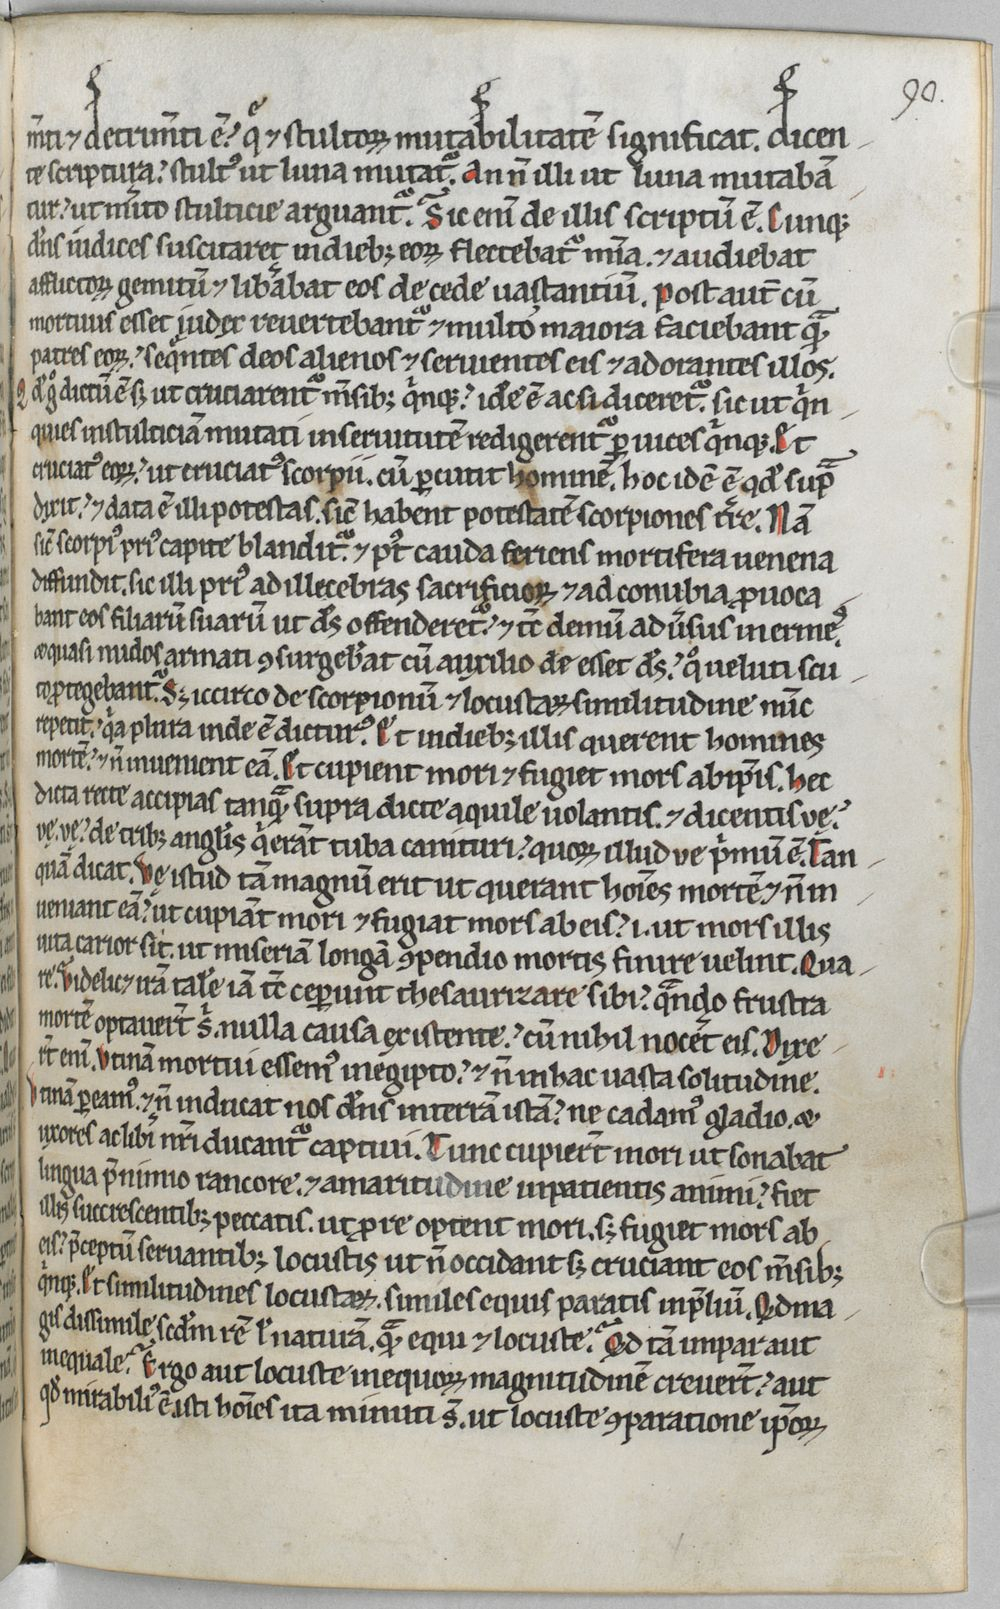 90.
m̄ti ⁊ detrim̄ti ē? q̊ ⁊ stultoꝝ mutabilitatē significat. dicen
te scriptura? stultꝰ ut luna mutat᷑. An n̄ illi ut luna mutabā
tur? ut m̄ito stulticie arguant᷑? Sic enī de illis scriptū ē. Cunqꝫ
dn̄s iudices suscitaret in diebꝫ eoꝝ flectebat᷑ mīa. ⁊ audiebat
afflictoꝝ gemitū ⁊ lib̄abat eos de cede uastantiū. Post aut̄ cū
mortuus esset iudex reuertebant᷑ ⁊ multo maiora faciebant qᷓ̄
patres eoꝝ. seq̄ntes deos alienos ⁊ seruientes eis ⁊ adorantes illos.
Qd̄ g̊ dictū ē sꝫ ut cruciarent᷑ m̄sibꝫ qⁱnqꝫ? idē ē ac si diceret᷑. sic ut qⁱn
quies in stulticiā mutati in seruitutē redigerent᷑ ꝑ uices qⁱnqꝫ. Et
cruciatꝰ eoꝝ? ut cruciatꝰ scorpii. cū ꝑcutit hominē. hoc idē ē qd̄ supᷓ
dixit? ⁊ data ē illi potestas. sic̄ habent potestatē scorpiones t̄re. Nā
sic̄ scorpiꝰ priꝰ capite blandit᷑ ⁊ pꝰt cauda feriens mortifera uenena
diffundit. sic illi priꝰ ad illecebras sacrificioꝝ ⁊ ad conubia ꝓuoca
bant eos filiarū suarū ut dꝰs offenderet᷑? ⁊ tc̄ demū aduͥsus inermes?
æ quasi nudos armati ꝯsurgebāt cū auxilio de esset dꝰs? q̊ ueluti scu
to ꝓtegebant᷑. Sꝫ iccirco de scorpionū ⁊ locustaꝝ similitudine nunc
repetit? qⁱa plura inde ē dicturꝰ. Et in diebꝫ illis querent homines
mortē? ⁊ n̄ inuenient eā. Et cupient mori ⁊ fugiet mors ab ip̄is. Hec
dicta recte accipias tanqᷓ supra dicte aquile uolantis. ⁊ dicentis vę?
vę. vę? de tribꝫ angl̄is qⁱ erāt tuba canituri? quoꝝ illud ve pⁱmū ē. Tan
quā dicat. Vę istud tā magnū erit ut querant hoīes mortē ⁊ n̄ in
ueniant eā? ut cupiāt mori ⁊ fugiat mors ab eis? i. ut mors illis
uita carior sit. ut miseriā longā ꝯpendio mortis finire uelint. Qua
re? Videlicꝫ irā talē iā tc̄ ceperunt thesaurizare sibi? qᷓndo frustra
mortē optauer̄t s̄. nulla causa existente? cū nihil nocēt eis. Dixe
r̄t enī. Vtinā mortui essemꝰ in egipto? ⁊ n̄ in hac uasta solitudine.
Vtinā ꝑeamꝰ. ⁊ n̄ inducat nos dn̄s in terrā istā? ne cadamꝰ gladio. æ
uxores ac libⁱ nr̄i ducant᷑ captiui. Tunc cupier̄t mori ut sonabat
lingua p̄ nimio rancore. ⁊ amaritudine inpatientis animi? fiet
illis succrescentibꝫ peccatis. ut ꝓ re optent mori. sꝫ fugiet mors ab
eis? p̄ceptū seruantibꝫ locustis ut n̄ occidant sꝫ cruciant eos m̄sibꝫ
qⁱnqꝫ. Et similitudines locustaꝝ. similes equis paratis in p̄liū. Qd ma
gis dissimile scd̄m rē ł naturā. qᷓ̄ equi ⁊ locuste? Qd tā impar aut
inequale? Ergo aut locuste in equoꝝ magnitudinē creuer̄t? aut
qd̄ mirabiliꝰ ē. isti hoīes ita minuti s̄. ut locuste ꝯparatione ip̄oꝝ